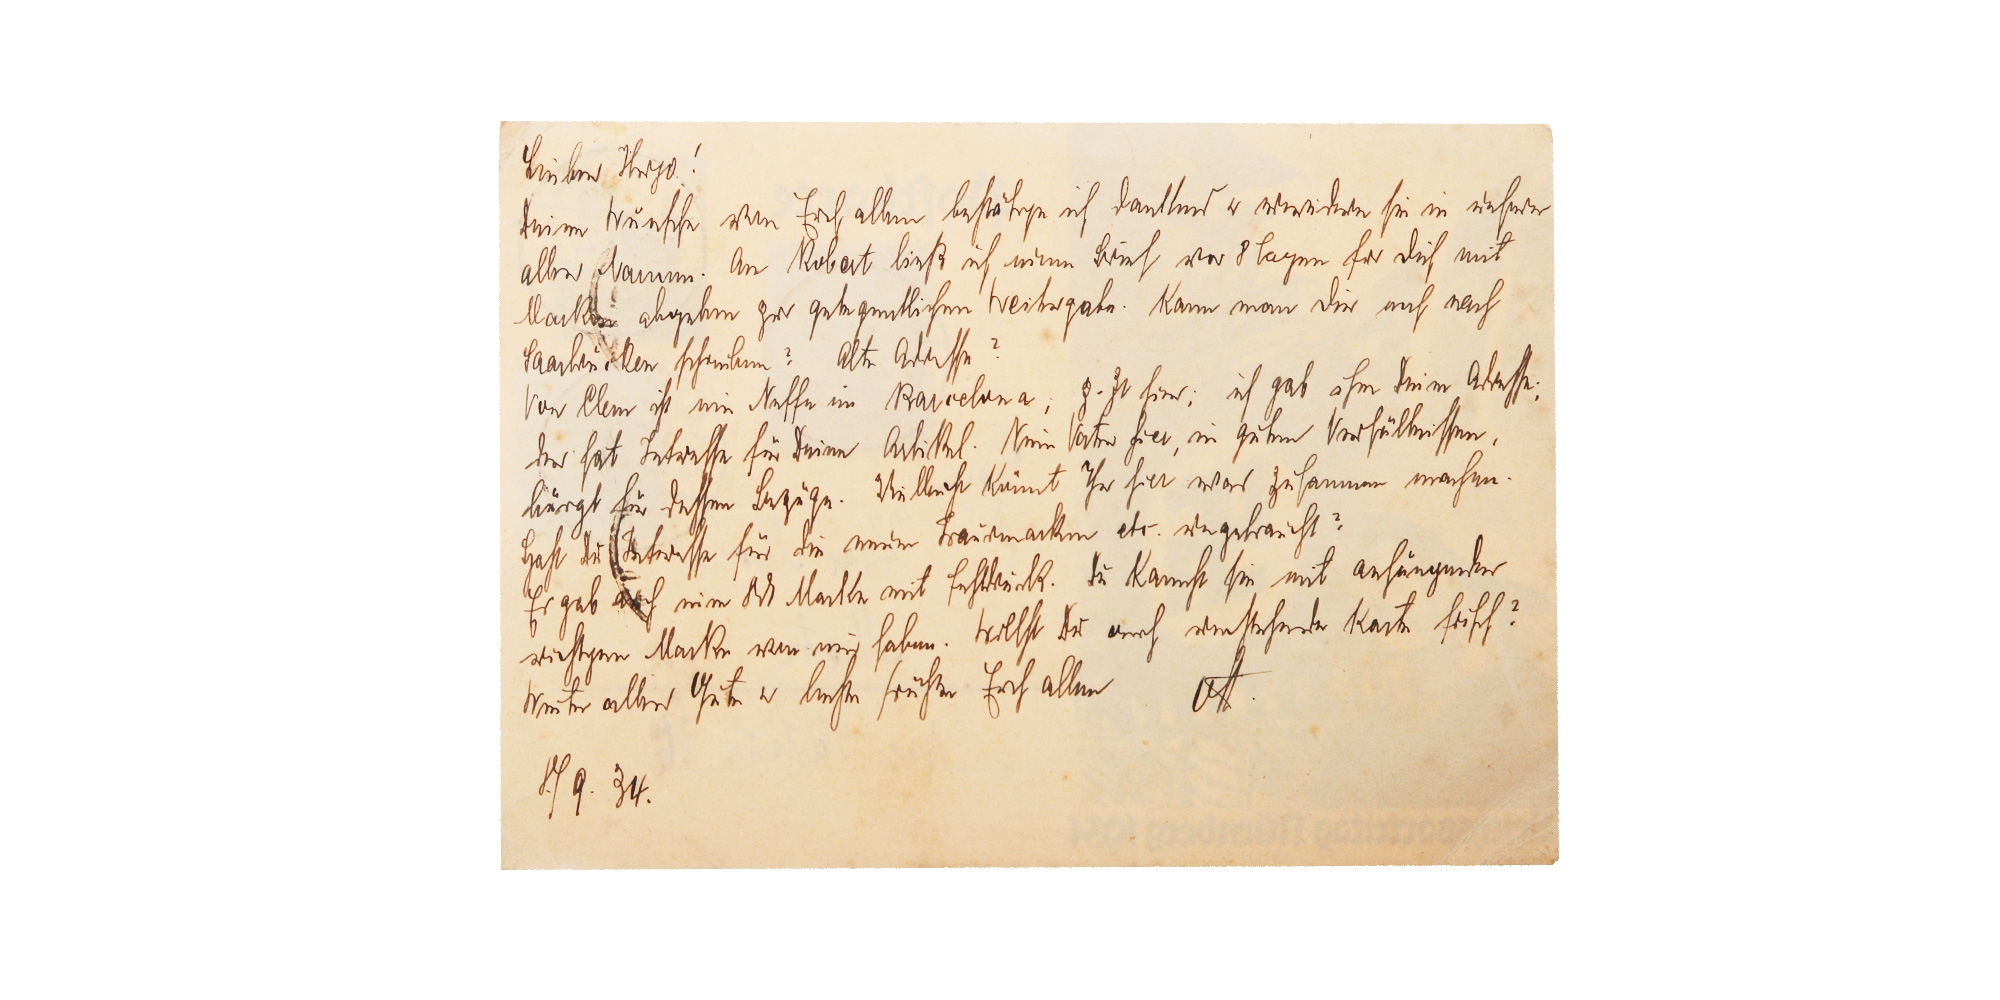 Lieber Hugo!
Deine Wünsche von Euch allen bestätige ich dankend u erwidere sie in unser
aller Namen. An Robert ließ ich einen Brief vor 8 Tagen für Dich mit
Marken abgeben zur gelegentlichen Weitergabe. Kann man Dir auch nach
Saarbrücken schreiben? Alte Adresse?
Von Clem ist ein Neffe in Barcelona, z. Zt hier; ich gab ihm Deine Adresse;
der hat Interesse für Deine Artikel. Sein Vater hier, in guten Verhältnissen,
bürgt für dessen Bezüge. Vielleicht könnt Ihr hier was zusammen machen.
Hast Du Interesse für die neuen Trauermarken etc. ungebraucht?
Es gab auch eine Marke mit Fehldruck. Du kannst sie mit anhängender
richtigen Marke von mir haben. Willst Du auch umstehende Karte frisch?
Weiter alles Gute u beste Grüße Euch allen
9. 34.
Nürnberg 1934